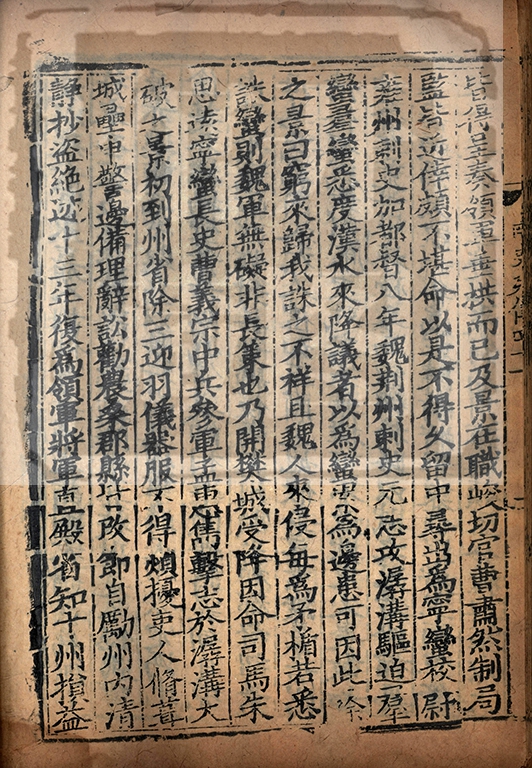 皆得呈奏領軍垂拱而已及景在職峻切官曹肅然制局
監皆近倖頗不堪命以是不得久留中尋出為寧蠻校尉
雍州刺史加都督八年魏荆州刺史元志攻潺溝驅迫羣
蠻羣蠻悉度漢水來降議者以為蠻累為邊患可因此除
之景曰窮來歸我誅之不祥且魏人來侵每為矛楯若悉
誅蠻則魏軍無礙非長策也乃開樊城受降因命司馬朱
思遠寧蠻長史曹義宗中兵參軍孟惠雋擊志於潺溝大
破之景初到州省除三迎羽儀器服不得煩擾吏人脩葺
城壘申警邊備理辭訟勸農桑郡縣皆改節自勵州內清
靜抄盜絕迹十三年復為領軍將軍直殿省知十州損益